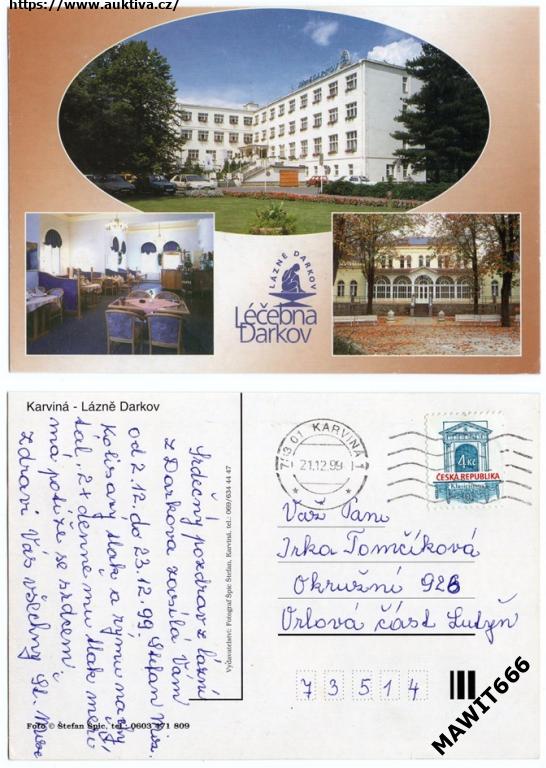 https://www.auktiva.cz/
LÁZNĚ DARKOV
Léčebna
Darkov
Karviná - Lázně Darkov
Srdečný pozdrav z lázní
z Darkova zasílá Vám
od 2.12. do 23.12.99, Štefan
Kolísavý tlak a rýmu
2x denně mu tlak
má potíže se srdcem i
zdraví Vás všechny St.
Vydavatelství: Fotograf Špic Štefan, Karviná, tel.: 069/634 44 47
Foto © Štefan Špic, tel.: 0603 471 809
733 01 KARVINÁ 1
21.12.99
4 Kč
ČESKÁ REPUBLIKA
Klasicismus
Váž Paní
Irka Tomčíková
Okružní 926
Orlová část Lutyň
7 3 5 1 4
MAWIT666